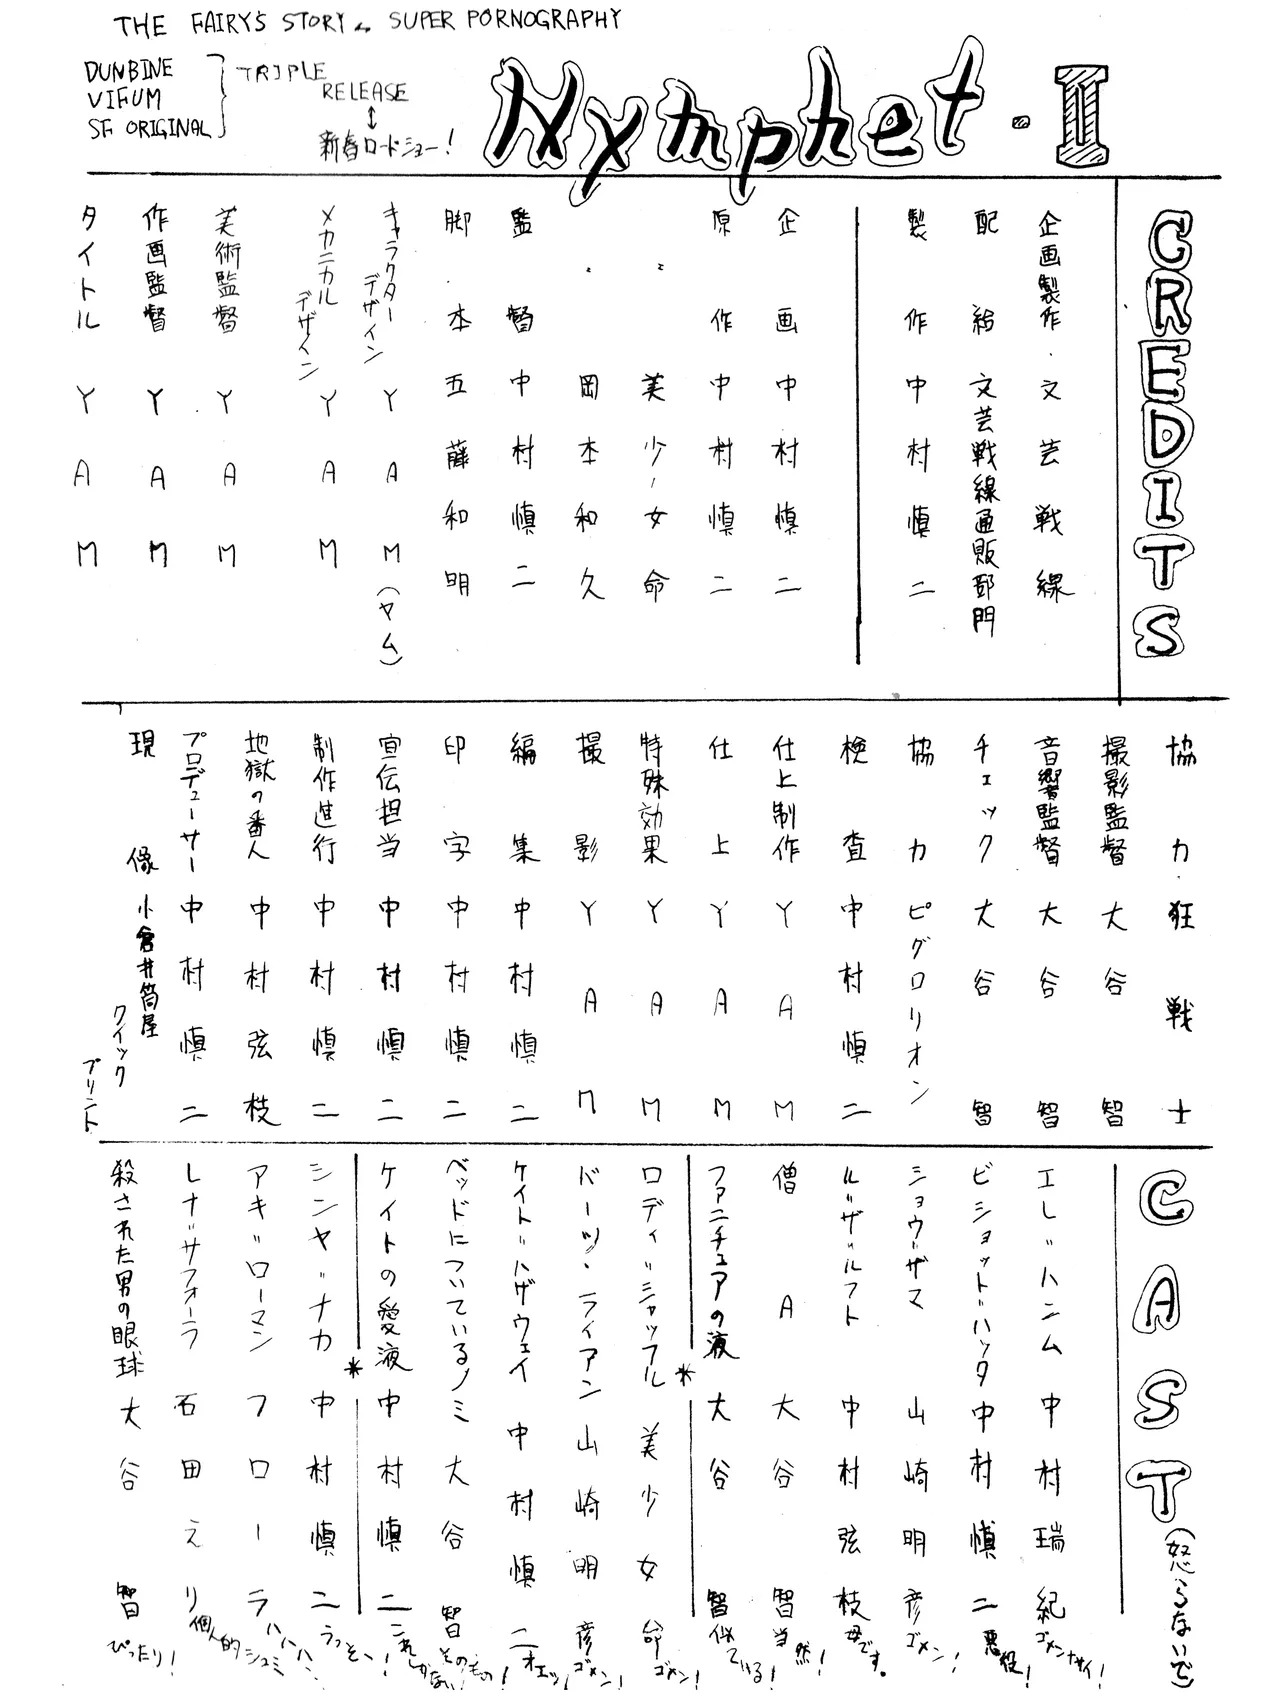 THE FAIRY'S STORY SUPER PORNOGRAPHY
DUNBINE
VIFUM
SF ORIGINAL
TRIPLE
RELEASE
新春ロードショー!
Nymphet・II
CREDITS
企画製作・文芸戦線
配給 文芸戦線通販部門
製作 中村慎二
企画 中村慎二
原作 中村慎二
〃 美少女命
〃 岡本和久
監督 中村慎二
脚本 五藤和明
キャラクターデザイン YAM(ヤム)
メカニカルデザイン YAM
美術監督 YAM
作画監督 YAM
タイトル YAM
協力・狂戦士
撮影監督 大谷智
音響監督 大谷智
チェック 大谷智
協力 ピグロリオン
検査 中村慎二
仕上制作 YAM
仕上 YAM
特殊効果 YAM
撮影 YAM
編集 中村慎二
印字 中村慎二
宣伝担当 中村慎二
制作進行 中村慎二
地獄の番人 中村弦枝
プロデューサー 中村慎二
現像 小倉井筒屋クイックプリント
CAST(怒らないで)
エレ=ハンム 中村瑞紀 ゴメンナサイ!
ビショット=ハッタ 中村慎二 悪役!
ショウ=ザマ 山崎明彦 ゴメン!
ルーザ=ルフト 中村弦枝 母です。
僧A 大谷智 当然!
ファニチュアの液 大谷智 似てける!
ロディ=シャッフル 美少女命 ゴメン!
バーツ・ライアン 山崎明彦 ゴメン!
ケイト=ハザウェイ 中村慎二 オエッ!
ベッドについているノミ 大谷智 そのもの!
ケイトの愛液 中村慎二 これしかない!
シンヤ=ナカ 中村慎二 うっそー!
アキ=ローマン フローラ ハハハハ・
レナ=サフォーラ 石田えり 個人的シュミ
殺された男の眼球 大谷智 ぴったり!